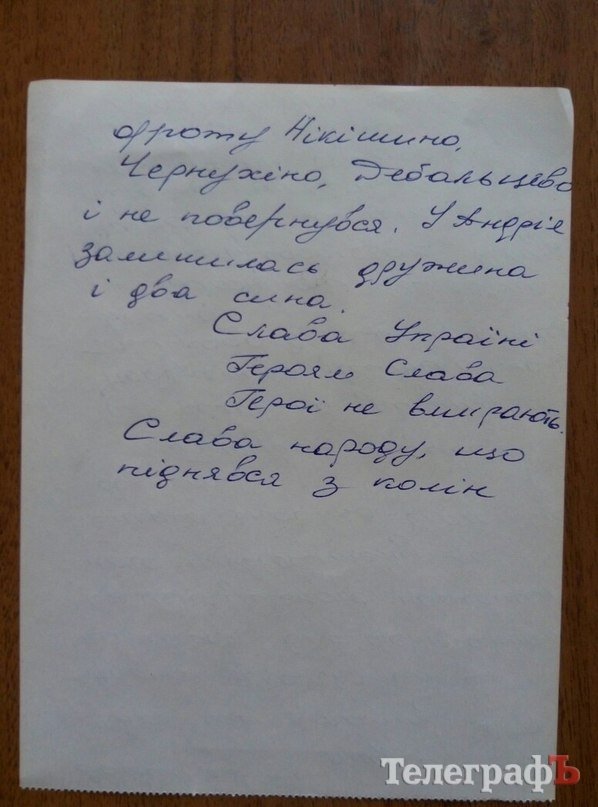 фронту Нікішино,
Чернухіно, Дебальцево
і не повернувся. У Андрія
залишилась дружина
і два сина.
Слава Україні
Героям Слава
Герої не вмирають.
Слава народу, що
піднявся з колін
ТелеграфЪ